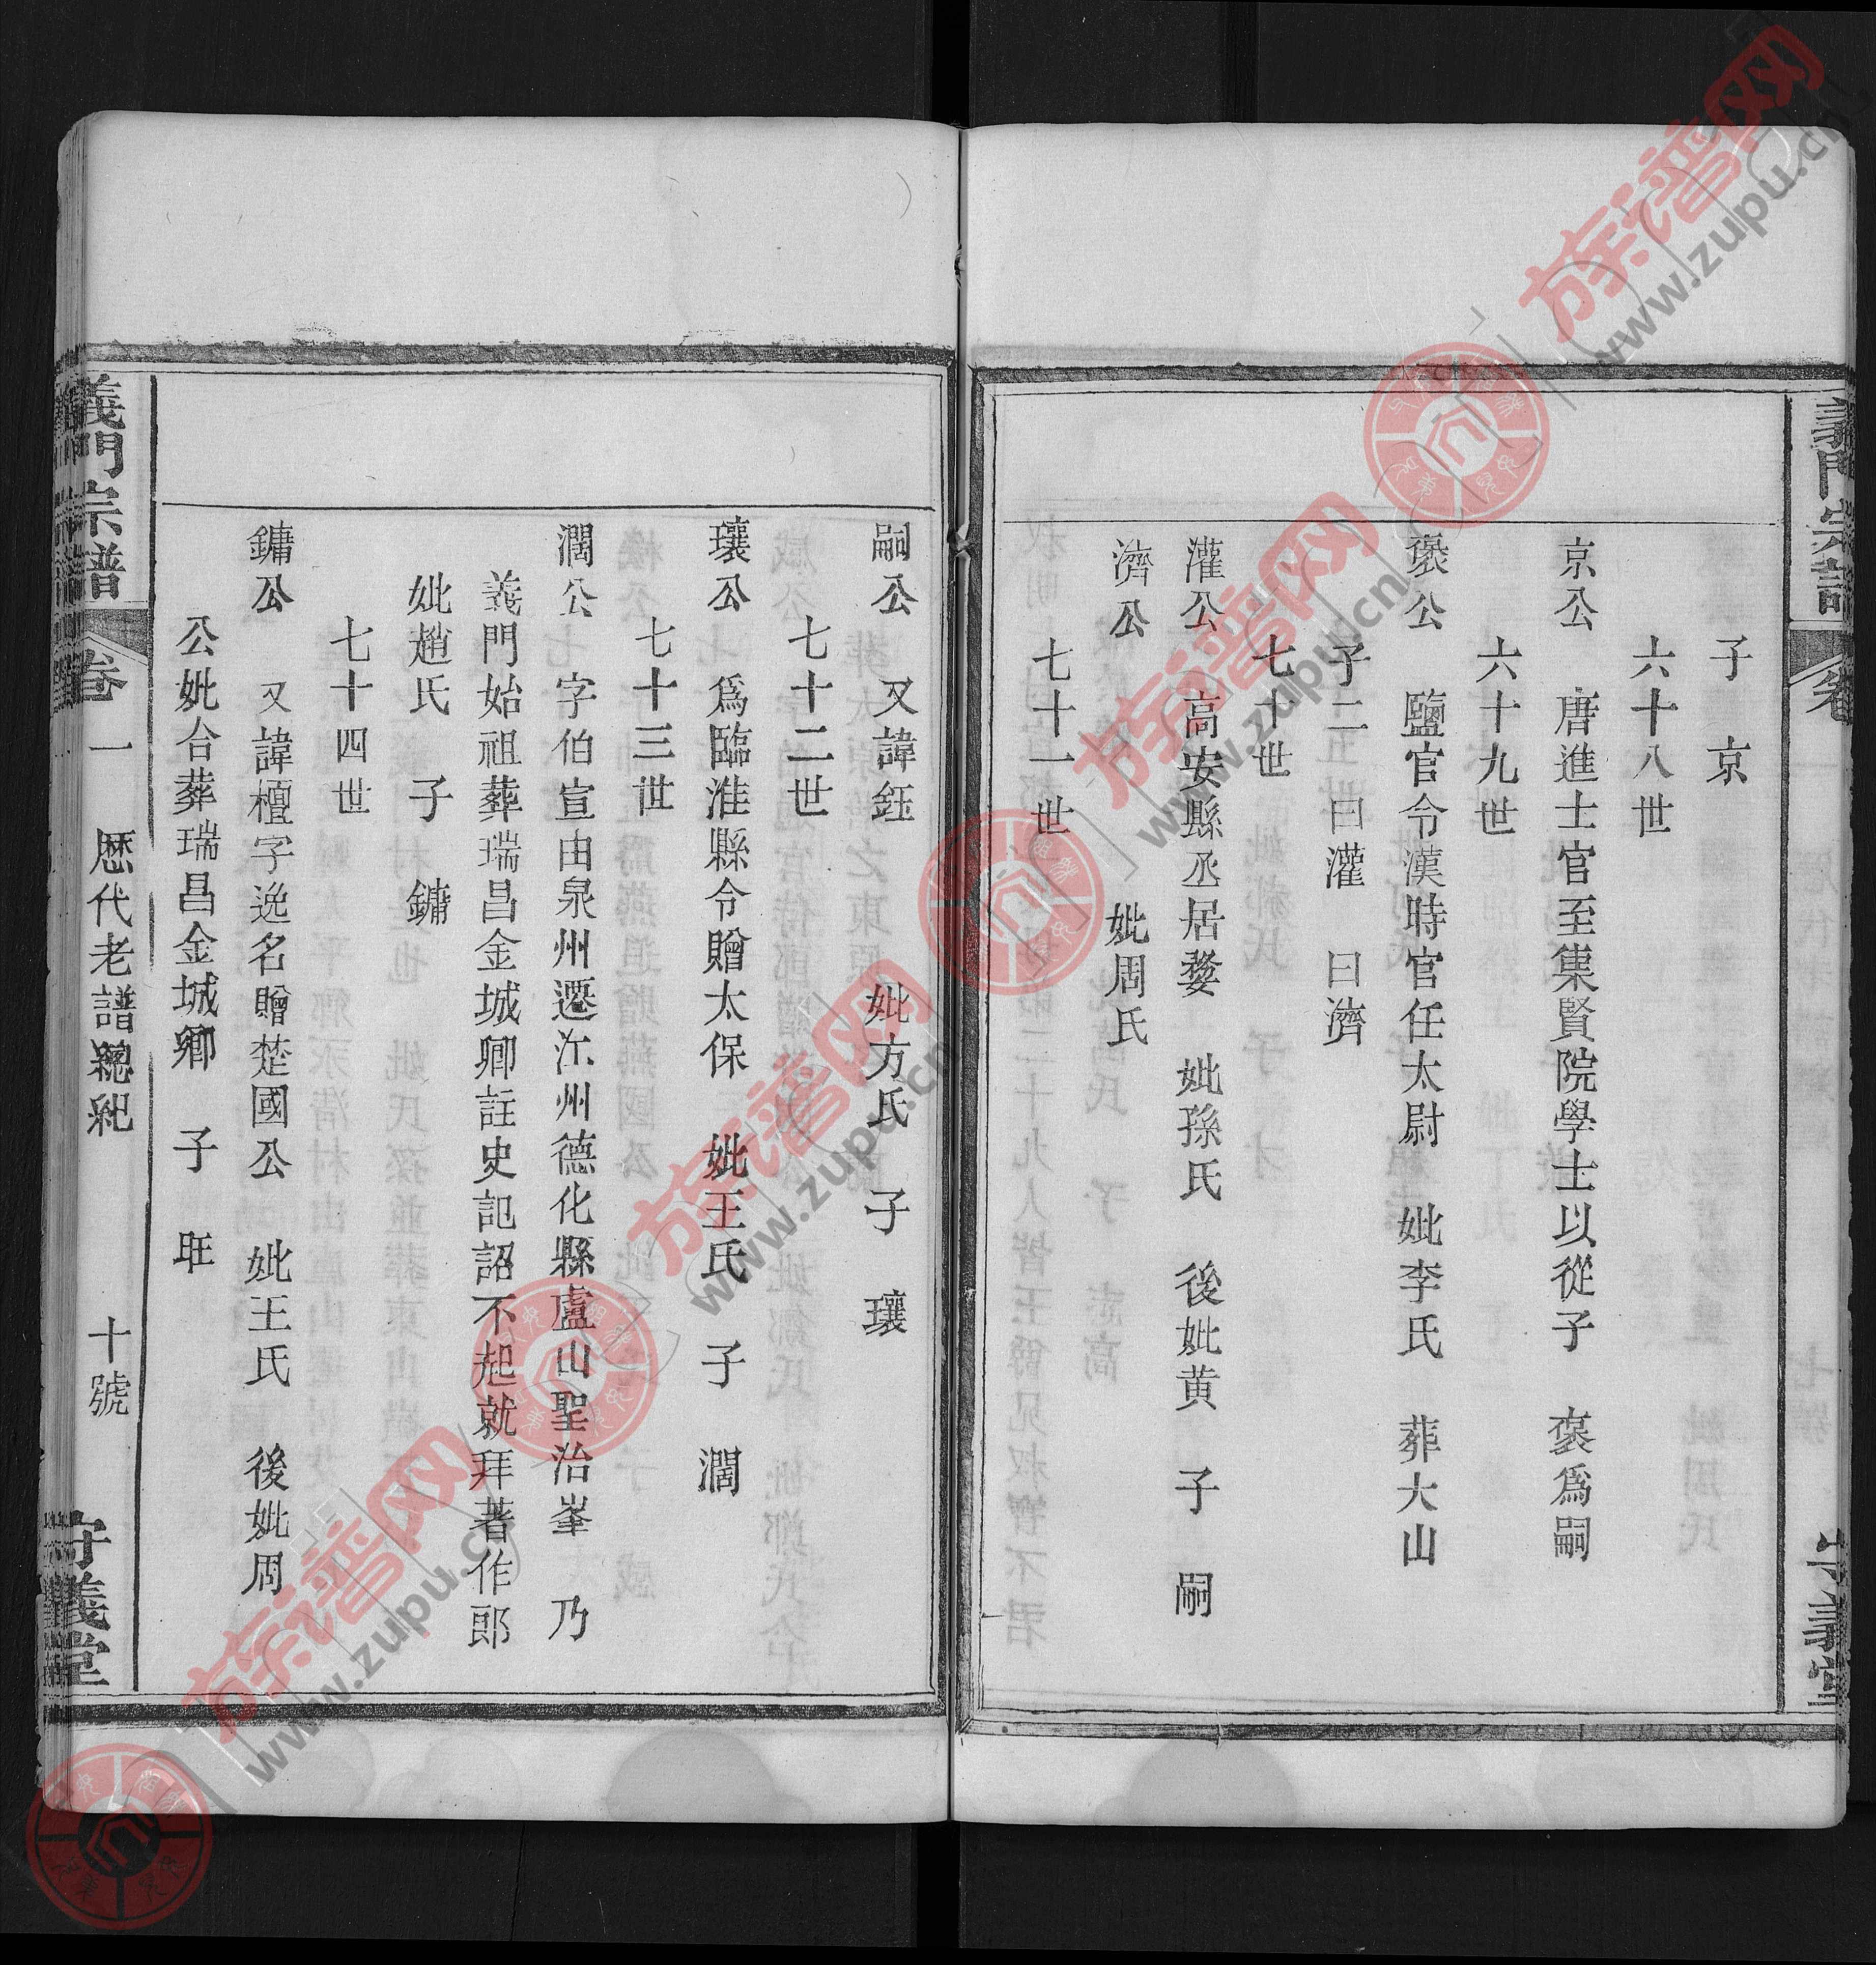 義門宗譜
卷
守義堂
子 京
六十八世
京公 唐進士官至集賢院學士以從子 褒爲嗣
六十九世
褒公 鹽官令漢時官任太尉 妣李氏 葬大山
子二 曰灌 曰濟
七十世
灌公 高安縣丞居婺 妣孫氏 後妣黄 子 嗣
濟公 妣周氏
七十一世
嗣公 又諱鈺 妣方氏 子 瓖
七十二世
瓖公 爲臨淮縣令贈太保 妣王氏 子 濶
七十三世
濶公 字伯宣由泉州遷江州德化縣盧山聖治峯 乃
義門始祖葬瑞昌金城鄉註史記詔不起就拜著作郎
妣趙氏 子 鏞
七十四世
鏞公 又諱檀字逸名贈楚國公 妣王氏 後妣周
公妣合葬瑞昌金城鄉 子 旺
義門宗譜
卷一 歷代老譜總紀 十號
守義堂
族谱网
www.zupu.cn
族谱网
www.zupu.cn
族谱网
www.zupu.cn
族谱网
www.zupu.cn